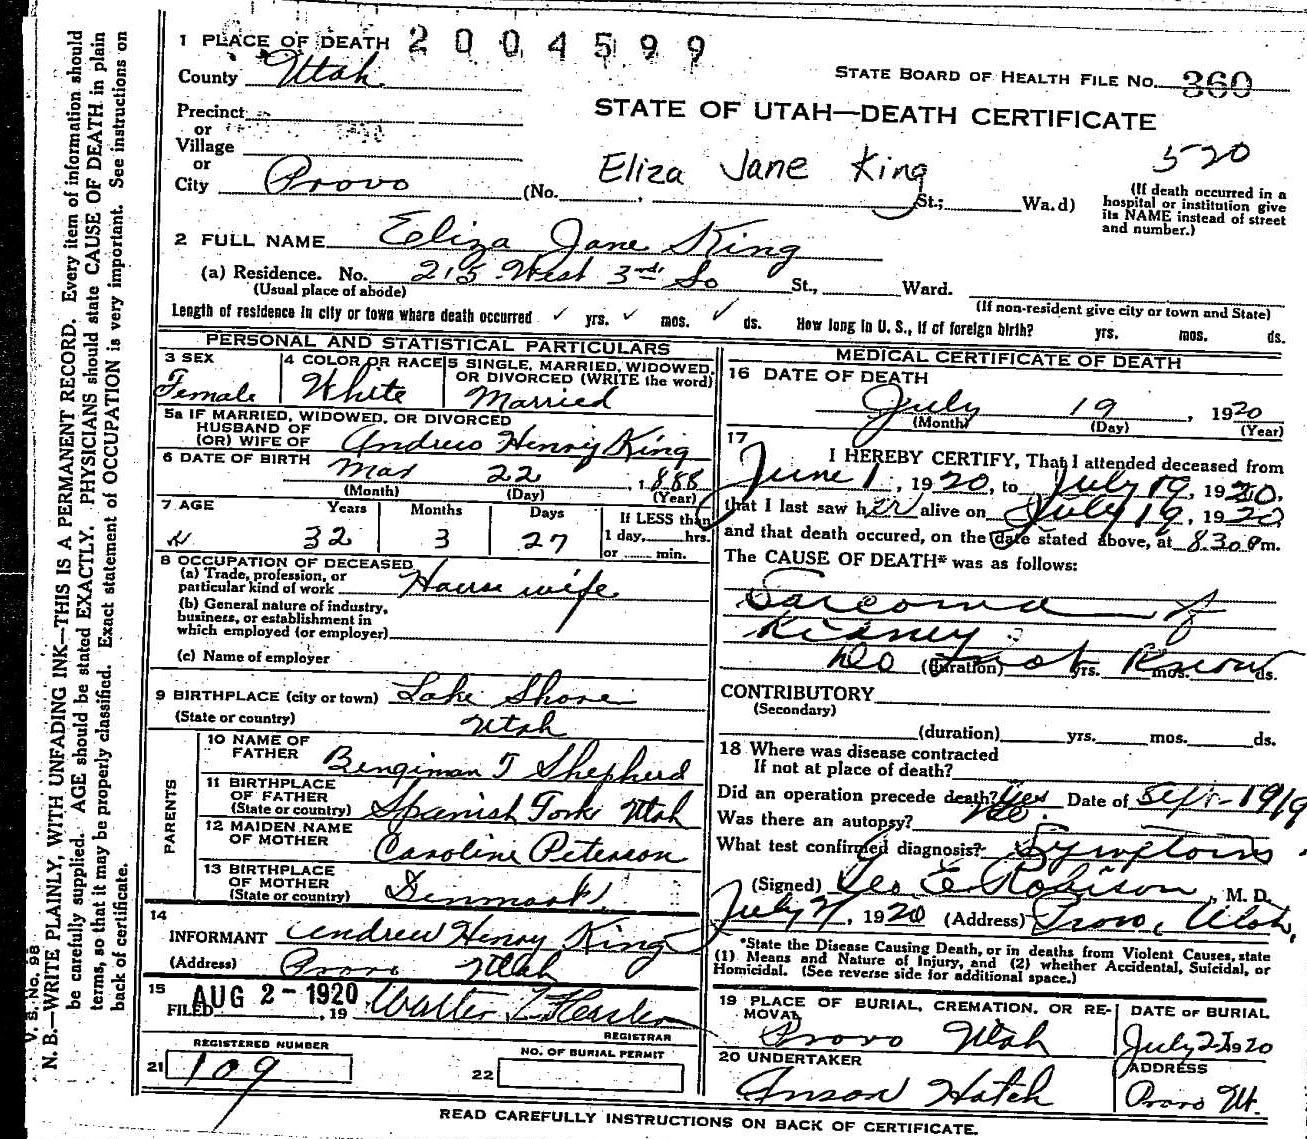 1 PLACE OF DEATH 2004599
County Utah
STATE BOARD OF HEALTH FILE No. 360
STATE OF UTAH—DEATH CERTIFICATE
Precinct
or
Village
or
City Provo (No. , St.; Wa.d)
Eliza Jane King
520
(If death occurred in a
hospital or institution give
its NAME instead of street
and number.)
2 FULL NAME Eliza Jane King
(a) Residence. No. 215 West 3rd So St., Ward.
(Usual place of abode) (If non-resident give city or town and State)
Length of residence in city or town where death occurred yrs. mos. ds. How long in U. S., if of foreign birth? yrs. mos. ds.
PERSONAL AND STATISTICAL PARTICULARS
3 SEX
Female
4 COLOR OR RACE
White
5 SINGLE, MARRIED, WIDOWED,
OR DIVORCED (WRITE the word)
Married
5a IF MARRIED, WIDOWED, OR DIVORCED
HUSBAND OF
(OR) WIFE OF Andrew Henry King
6 DATE OF BIRTH Mar 22, 1888
(Month) (Day) (Year)
7 AGE Years Months Days
32 3 27
If LESS than
1 day, hrs.
or min.
8 OCCUPATION OF DECEASED
(a) Trade, profession, or
particular kind of work House wife
(b) General nature of industry,
business, or establishment in
which employed (or employer)
(c) Name of employer
9 BIRTHPLACE (city or town) Lake Shore
(State or country) Utah
PARENTS
10 NAME OF
FATHER Bengiman T Shepherd
11 BIRTHPLACE
OF FATHER
(State or country) Spanish Fork Utah
12 MAIDEN NAME
OF MOTHER Caroline Peterson
13 BIRTHPLACE
OF MOTHER
(State or country) Denmark
14
INFORMANT Andrew Henry King
(Address) Provo Utah
15
FILED AUG 2-1920, 19 Walter T
REGISTRAR
REGISTERED NUMBER
21 109
NO. OF BURIAL PERMIT
22
MEDICAL CERTIFICATE OF DEATH
16 DATE OF DEATH
July 19, 1920
(Month) (Day) (Year)
17
I HEREBY CERTIFY, That I attended deceased from
June 1, 1920, to July 19, 1920,
that I last saw her alive on July 19, 1920
and that death occured, on the date stated above, at 830 Pm.
The CAUSE OF DEATH* was as follows:
Sarcoma of
Kidney
Do not Know
(duration) yrs. mos. ds.
CONTRIBUTORY
(Secondary)
(duration) yrs. mos. ds.
18 Where was disease contracted
If not at place of death?
Did an operation precede death? Yes Date of Sept-1919
Was there an autopsy? No
What test confirmed diagnosis? Symptoms
(Signed) Geo E Robison, M. D.
July 21, 1920 (Address) Provo, Utah.
*State the Disease Causing Death, or in deaths from Violent Causes, state
(1) Means and Nature of Injury, and (2) whether Accidental, Suicidal, or
Homicidal. (See reverse side for additional space.)
19 PLACE OF BURIAL, CREMATION, OR RE-
MOVAL
Provo Utah
DATE OF BURIAL
July 22 1920
20 UNDERTAKER
Anson Hatch
ADDRESS
Provo Ut.
READ CAREFULLY INSTRUCTIONS ON BACK OF CERTIFICATE.
V. S. No. 98
N. B.—WRITE PLAINLY, WITH UNFADING INK—THIS IS A PERMANENT RECORD. Every item of information should
be carefully supplied. AGE should be stated EXACTLY. PHYSICIANS should state CAUSE OF DEATH in plain
terms, so that it may be properly classified. Exact statement of OCCUPATION is very important. See instructions on
back of certificate.